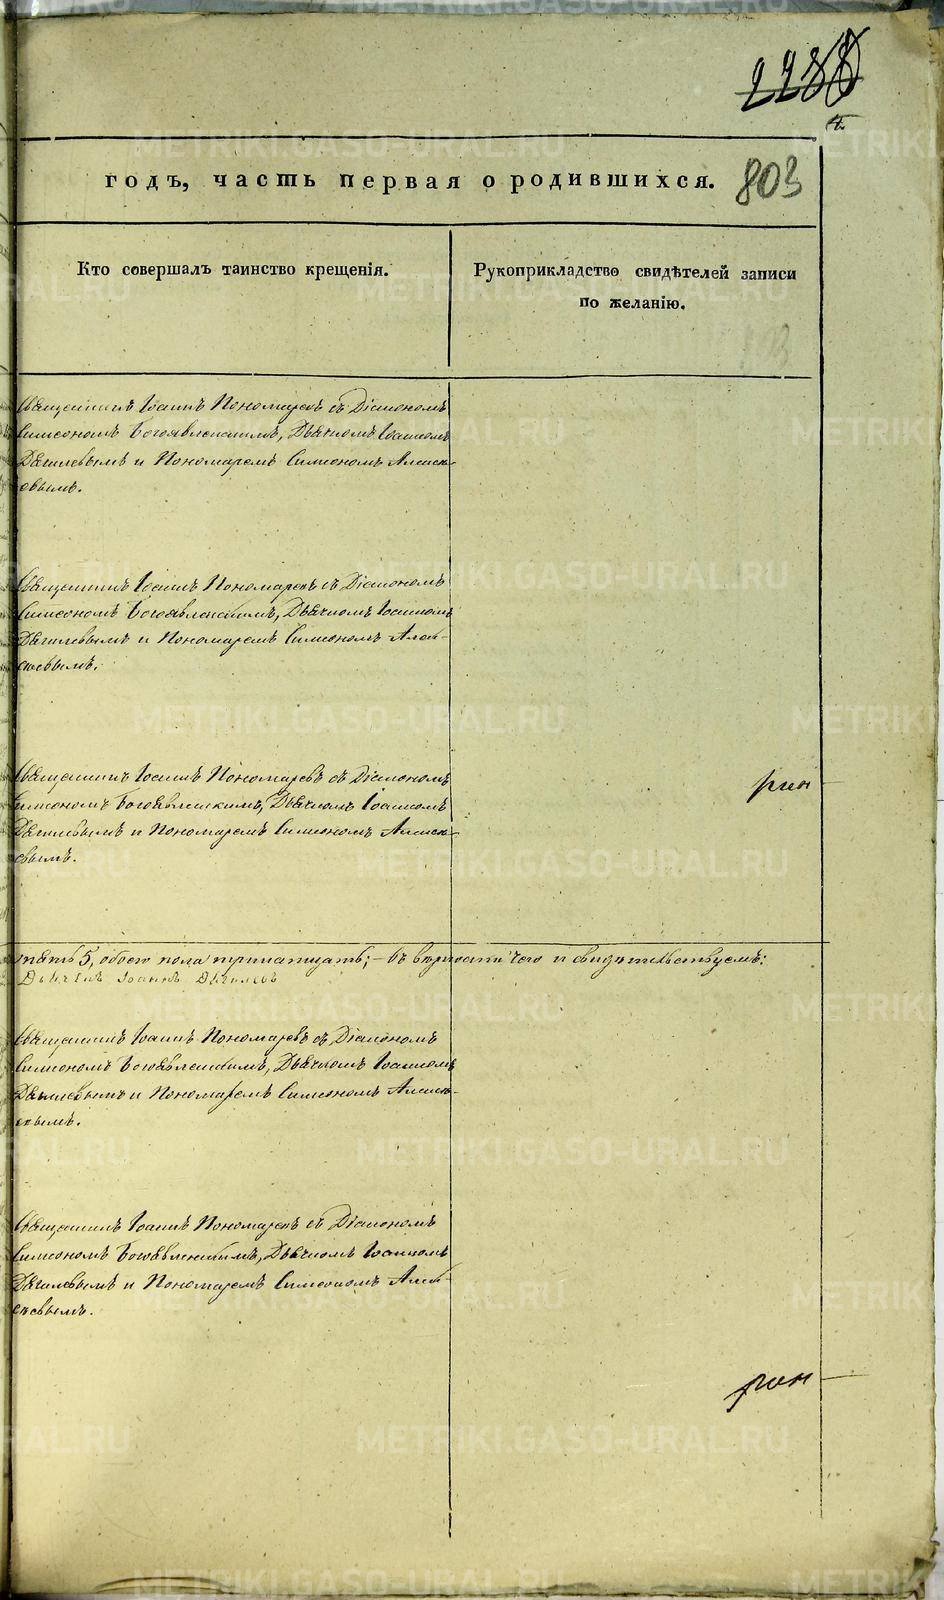 годъ, часть первая о родившихся. 803
Кто совершалъ таинство крещенія.
Рукоприкладство свидѣтелей записи
по желанію.
Священникъ Іоаннъ Пономаревъ съ Діакономъ
Симеономъ Богоявленскимъ, Дьячкомъ Іоанномъ
Дягилевымъ и Пономаремъ Симеономъ Алексѣ-
евымъ.
Священникъ Іоаннъ Пономаревъ съ Діакономъ
Симеономъ Богоявленскимъ, Дьячкомъ Іоанномъ
Дягилевымъ и Пономаремъ Симеономъ Алек-
сѣевымъ.
Священникъ Іоаннъ Пономаревъ съ Діакономъ
Симеономъ Богоявленскимъ, Дьячкомъ Іоанномъ
Дягилевымъ и Пономаремъ Симеономъ Алексѣ-
евымъ.
5, обоего пола тринатцать; – въ вѣрности чего и свидѣтельствуемъ:
Дьячекъ Іоаннъ Дягилевъ
Священникъ Іоаннъ Пономаревъ съ Діакономъ
Симеономъ Богоявленскимъ, Дьячкомъ Іоанномъ
Дягилевымъ и Пономаремъ Симеономъ Алексѣ-
евымъ.
Священникъ Іоаннъ Пономаревъ съ Діакономъ
Симеономъ Богоявленскимъ, Дьячкомъ Іоанномъ
Дягилевымъ и Пономаремъ Симеономъ Алек-
сѣевымъ.
METRIKI.GASO-URAL.RU